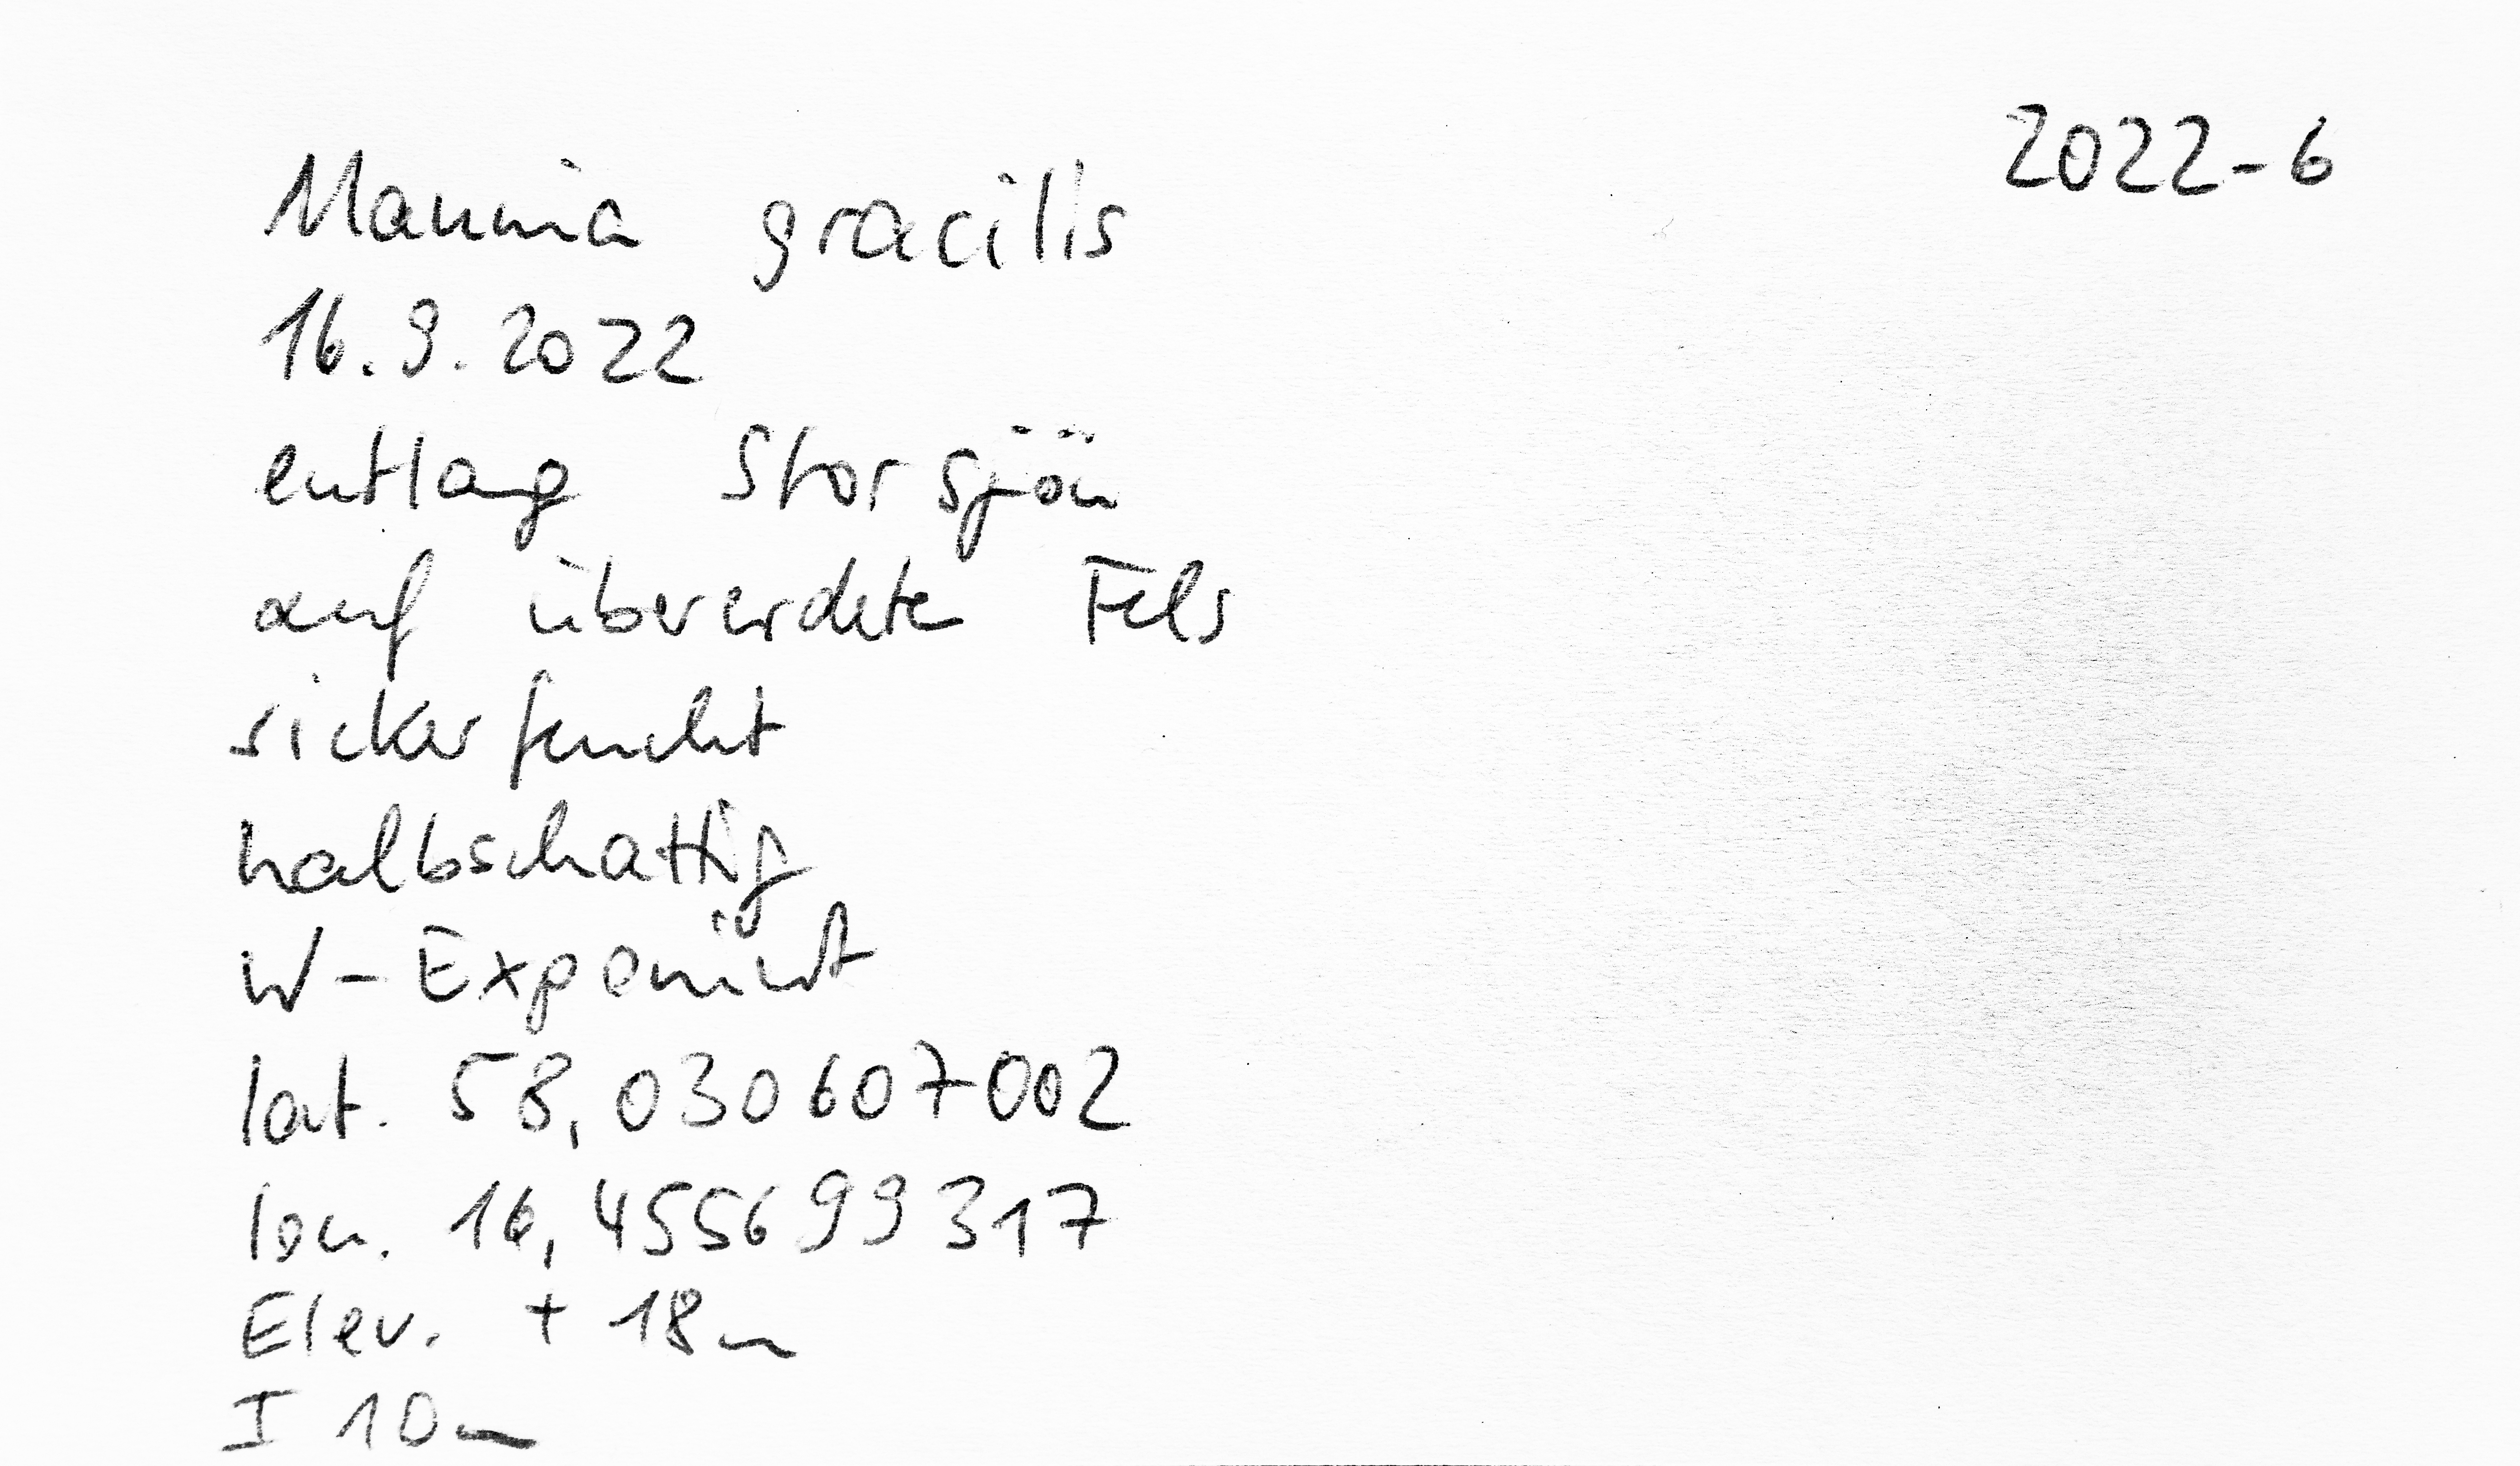 2022-6
Mannia gracilis
16.9.2022
entlang Storsjön
auf übererdeten Fels
sickerfeucht
halbschattig
W-Exponiert
lat. 58,030607002
lon. 16,455699317
Elev. + 18m
I 10m